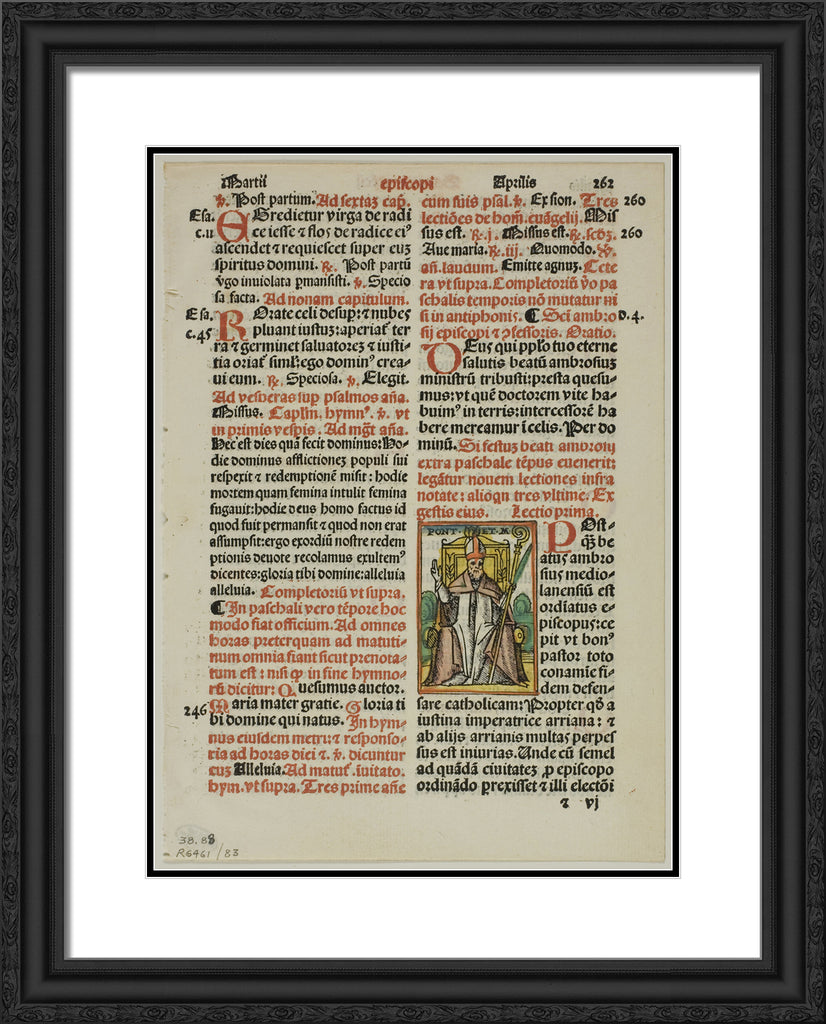 Martii episcopi Aprilis 262
℣. Post partum. Ad sextaʒ cap̄.
Esa. EGredietur virga de radi
c.11 ce iesse ⁊ flos de radice eiꝰ
ascendet ⁊ requiescet super euʒ
spiritus domini. ℞. Post partū
v̓go inuiolata p̱mansisti. ℣. Specio
sa facta. Ad nonam capitulum.
Esa. ROrate celi desup̱: ⁊ nubes
c.45 pluant iustuʒ: aperiat̃ ter
ra ⁊ germinet saluatoreʒ ⁊ iusti-
tia oriat̃ siml̓: ego dominꝰ crea-
ui eum. ℞. Speciosa. ℣. Elegit.
Ad vesperas sup̱ psalmos añа.
Missus. Capl̓m. hymnꝰ. ℣. vt
in primis vesp̱is. Ad mg̃t añа.
Hec est dies quā fecit dominus: Ho-
die dominus afflictioneʒ populi sui
respexit ⁊ redemptionē misit: hodie
mortem quam femina intulit femina
fugauit: hodie deus homo factus id
quod fuit permansit ⁊ quod non erat
assumpsit: ergo exordiū nostre redem
ptionis deuote recolamus exultemꝰ
dicentes: gloria tibi domine: alleluia
alleluia. Completoriū vt supra.
¶ In paschali vero tēpore hoc
modo fiat officium. Ad omnes
horas preterquam ad matuti-
num omnia fiant sicut prenota-
tum est: nisi ꝙ in fine hymno-
rū dicitur: Quesumus auctor.
246 Maria mater gratie. Gloria ti
bi domine qui natus. In hym-
nus eiusdem metri: ⁊ responso-
ria ad horas diei ⁊ ℣. dicuntur
cuʒ Alleluia. Ad matuṫ. iuitato.
hym. vt supra. Tres prime añe
cum suis psal. ℣. Ex sion. Tres 260
lectiōes de hom̄. euāgelij. Mis
sus est. ℞. j. Missus est. ℞. scd̓ʒ. 260
Aue maria. ℞. iij. Quomodo. ℣.
añ. laudum. Emitte agnuʒ. Cete
ra vt supra. Completoriū v̓o pa
schalis temporis nō mutatur ni
si in antiphonis. ¶ Scti ambro D.4.
sij episcopi ⁊ ꝯfessoris. Oratio.
DEus qui pp̱lo tuo eterne
salutis beatū ambrosiuʒ
ministrū tribuisti: presta quesu-
mus: vt quē doctorem vite ha-
buimꝰ in terris: intercessorē ha
bere mereamur ī celis. Per do
minū. Si festuʒ beati ambrosij
extra paschale tēpus euenerit:
legāt̃ur nouem lectiones infra
notate: alioqn̄ tres vltime. Ex
gestis eius. Lectio prima.
PONT ET M
POst-
q̃ʒ be
atus ambro
sius medio-
lanensiū est
ordīatus e-
piscopus: ce
pit vt bonꝰ
pastor toto
conamīe fi-
dem defen-
sare catholicam: Propter qd̓ a
iustina imperatrice arriana: ⁊
ab alijs arrianis multas perpes
sus est iniurias. Unde cū semel
ad quādā ciuitateʒ ꝓ episcopo
ordinādo p̱rexisset ⁊ illi electōi
⁊ vj
38.88
R6461/83